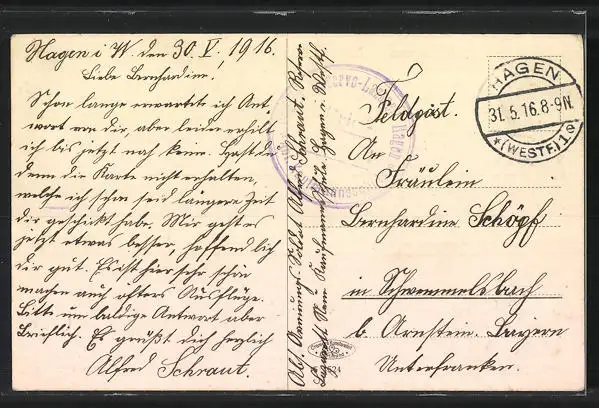 Hagen i. W. den 30. V. 1916.
Liebe Bernhardine!
Schon lange erwartete ich Ant-
wort von dir, aber leider erhilt
ich bis jetzt noh keine. Hast du
denn die Karte nicht erhalten,
welche ich schon seid längere Zeit
dir geschikt habe. Mir geht es
jetzt etwas besser, hoffendlich
dir gut. Es ist hier sehr schön
machen auch öfters Ausflüge.
Bitte um baldige Antwort aber
Brieflich. Es grüßt dich herzlich
Alfred Schraut.
Abs. Armierungs-Soldat Alfred Schraut. Reserv-
Lazarett Hagen i. Westf.
Feldpost.
HAGEN
31.5.16.8-9N.
*(WESTF.)1e
An
Fräulein
Bernhardine Schöpf
in Schwemmelsbach
b. Arnstein. Bayern
Unterfranken.